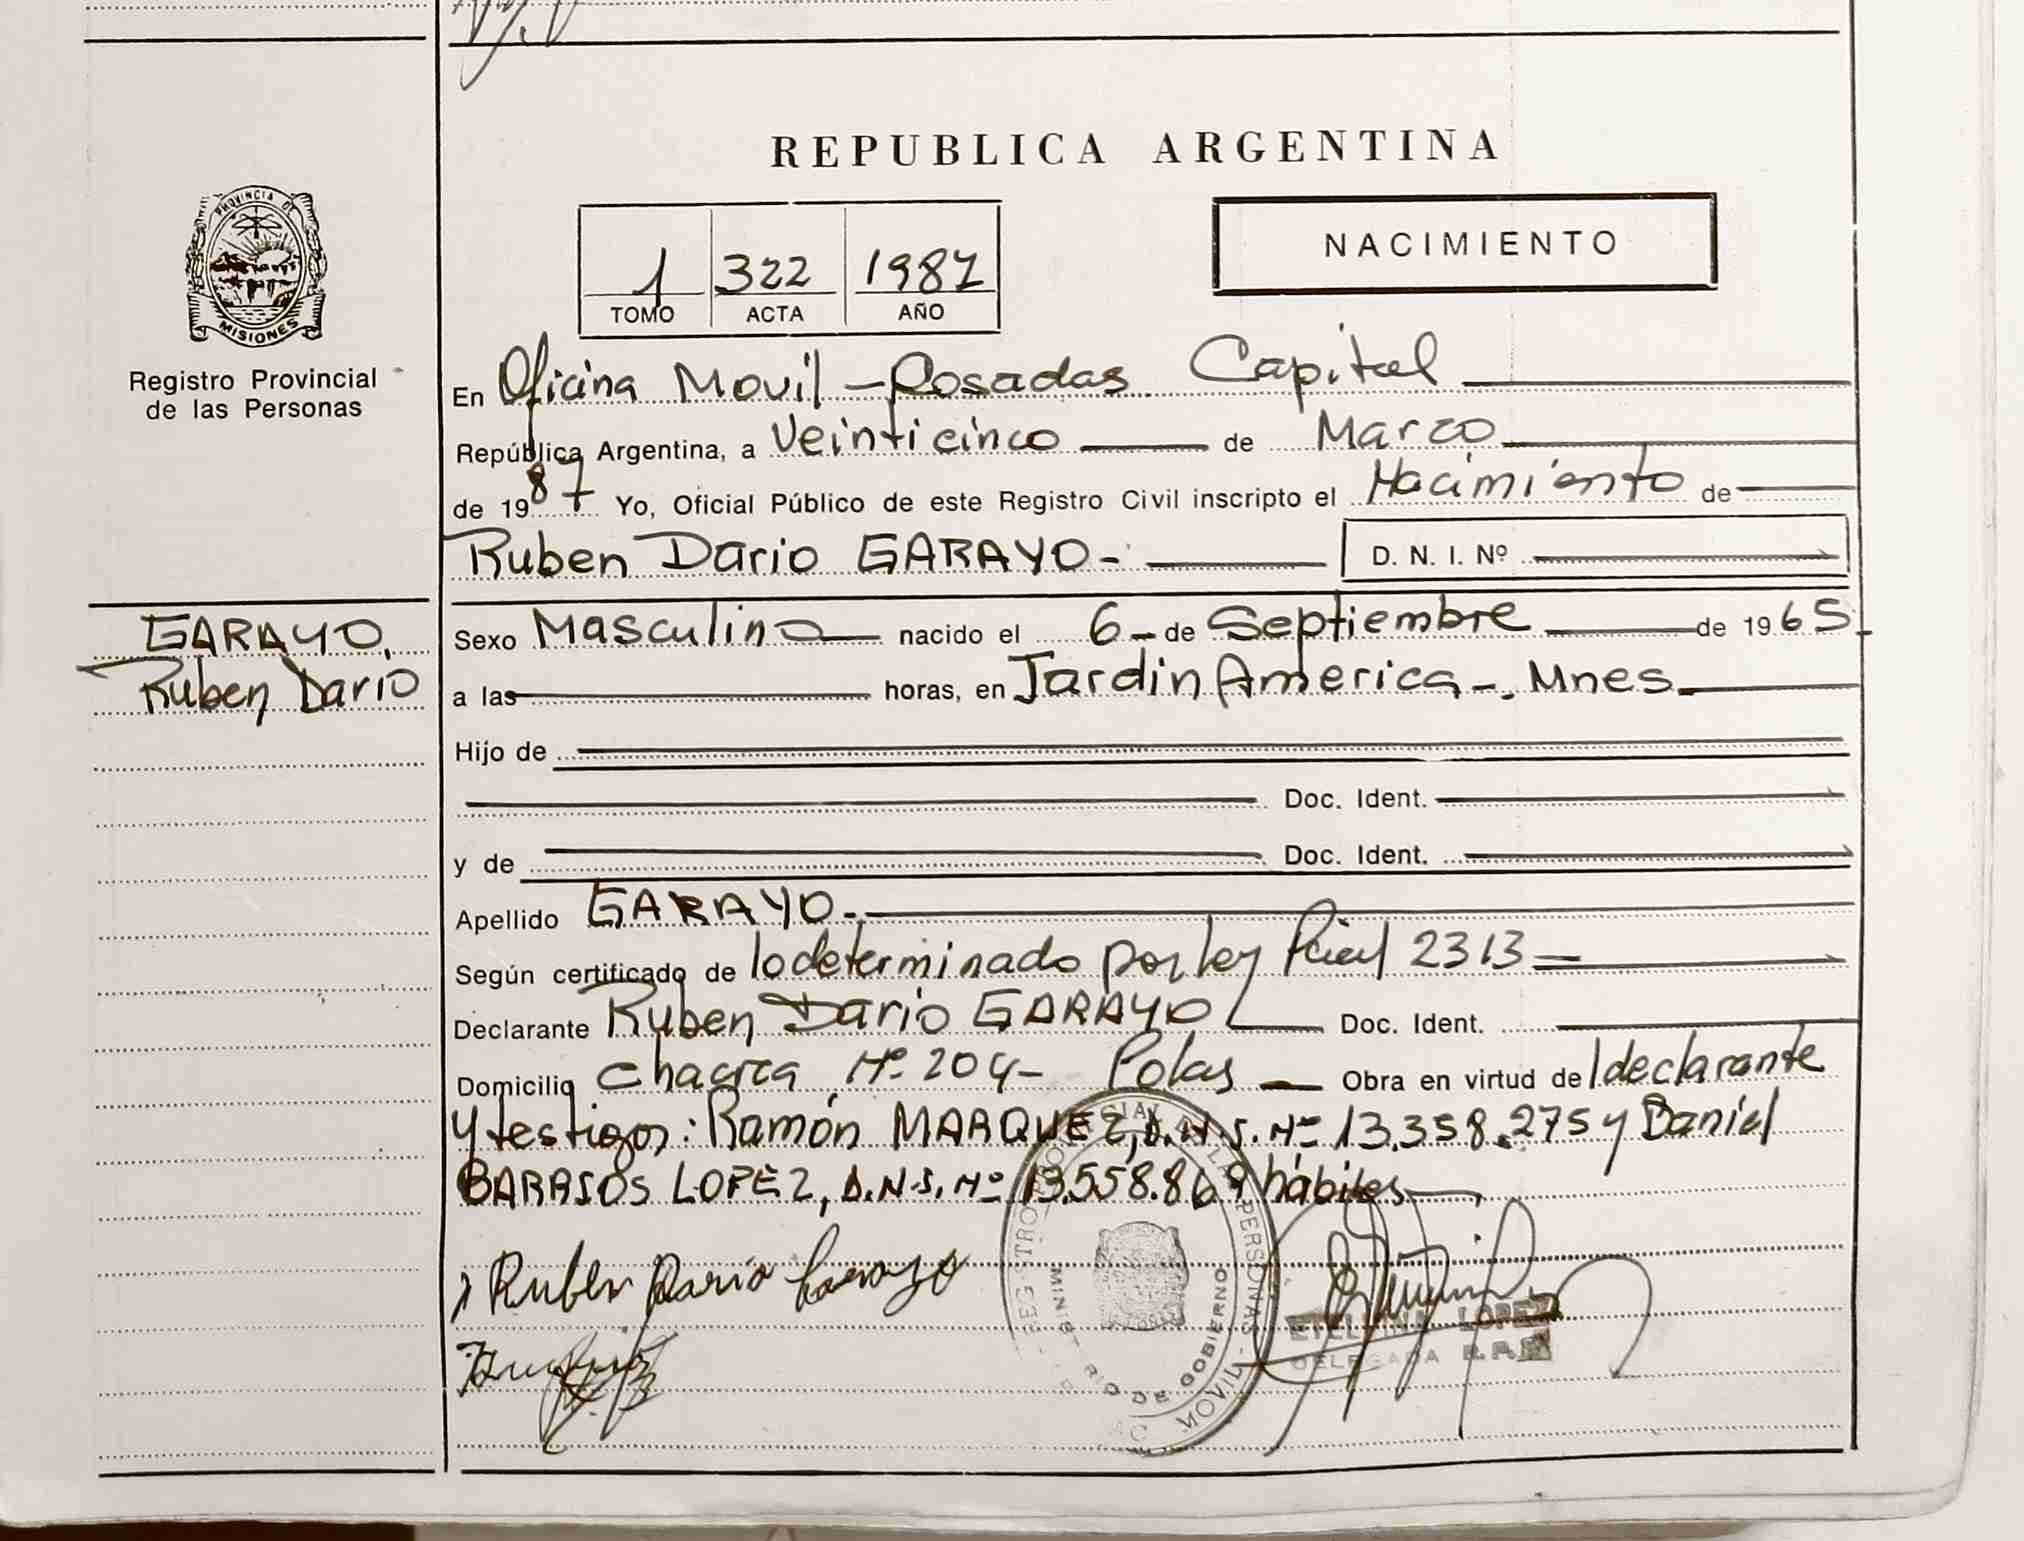 REPUBLICA ARGENTINA
PROVINCIA DE
MISIONES
Registro Provincial
de las Personas
1 322 1987
TOMO ACTA AÑO
NACIMIENTO
En Oficina Movil - Posadas Capital
República Argentina, a Veinticinco de Marzo
de 1987 Yo, Oficial Público de este Registro Civil inscripto el Nacimiento de
Ruben Dario GARAYO - D. N. I. Nº
GARAYO,
Ruben Dario
Sexo Masculino nacido el 6 - de Septiembre de 1965
a las horas, en Jardin America -. Mnes.
Hijo de
Doc. Ident.
y de Doc. Ident.
Apellido GARAYO.
Según certificado de lo determinado por ley Pcial 2313
Declarante Ruben Dario GARAYO Doc. Ident.
Domicilio Chacra Nº 204 - Pdas Obra en virtud del declarante
y testigos: Ramón MARQUEZ, D.N.I. Nº 13.358.275 y Daniel
BARRIOS LOPEZ, D.N.I. Nº 13.558.869 hábiles
Ruben Dario Garayo
REGISTRO PROVINCIAL DE LAS PERSONAS - MOVIL
MINISTERIO DE GOBIERNO
ETELVINA LOPEZ
DELEGADA R.P.